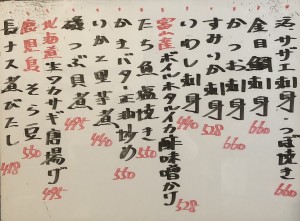 活サザエ刺身・つぼ焼き
金目鯛刺身 660
かつお刺身 660
すみいか刺身 528
いわし刺身 440
富山産ボイルホタルイカ酢味噌かけ 528
たち魚塩焼き 550
かきバター正油炒め 550
いかと里芋煮 440
磯つぶ貝煮 495
北海道生ワカサギ唐揚げ 495
鹿児島そら豆 550
長ナス煮びたし 418